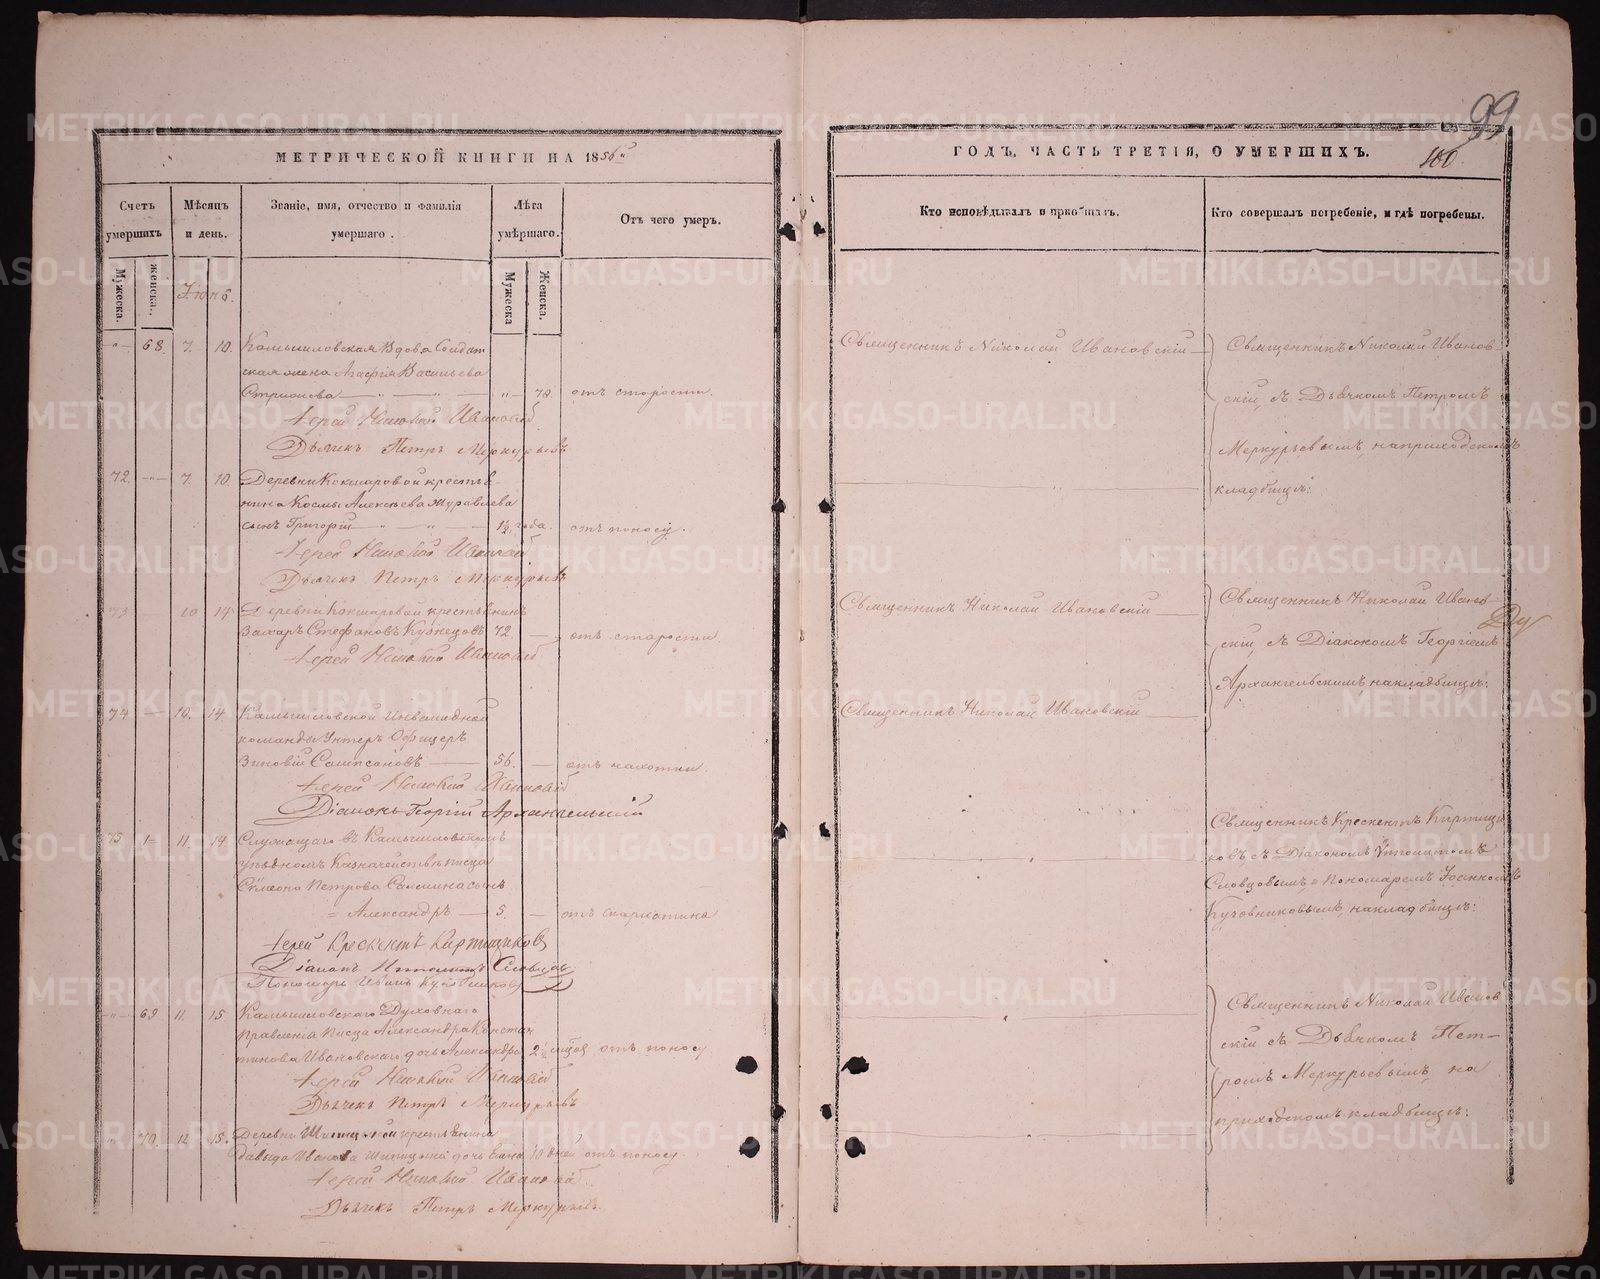 99
МЕТРИЧЕСКОЙ КНИГИ НА 1856й
ГОДЪ, ЧАСТЬ ТРЕТІЯ, О УМЕРШИХЪ.
100
Счетъ умершихъ
Мѣсяцъ и день.
Званіе, имя, отчество и фамилія умершаго.
Лѣта умершаго.
Отъ чего умеръ.
Кто исповѣдывалъ и пріобщалъ.
Кто совершалъ погребеніе, и гдѣ погребены.
Мужеска.
женска.
Мужеска
Женска.
Іюнь.
68. 7. 10. Камышловская Вдова Солдат
ская жена Агафія Васильева
78. отъ старости.
Іерей Николай Ивановскій
Дьячекъ Петръ Меркурьевъ
Священникъ Николай Ивановскій
Священникъ Николай Иванов
скій, съ Дьячкомъ Петромъ
Меркурьевымъ, на приходскомъ
кладбищѣ.
72. 7. 10. Деревни Кокшаровой крестья
нина Космы Алексѣева Журавлева
сынъ Григорій 1½ года. отъ поносу.
Іерей Николай Ивановскій
Дьячекъ Петръ Меркурьевъ
73 10 14 Деревни Кокшаровой крестьянинъ
Захаръ Стефановъ Кузнецовъ 72. отъ старости
Іерей Николай Ивановскій
Священникъ Николай Ивановскій
Священникъ Николай Иванов
скій, съ Діакономъ Георгіемъ
Архангельскимъ на кладбищѣ.
74 10. 14 Камышловской Инвалидной
команды Унтеръ Офицеръ
Зиновій Сампсоновъ 56. отъ чахотки.
Іерей Николай Ивановскій
Діаконъ Георгій Архангельскій
Священникъ Николай Ивановскій
75 11. 14 Служащаго въ Камышловскомъ
уѣздномъ Казначействѣ писца
Симеона Петрова сынъ
Александръ 5. отъ скарлатина
Іерей Крескентъ Киртищиковъ
Діаконъ Ипполитъ Словцовъ
Пономарь
Священникъ Крескентъ Киртищи
ковъ съ Діакономъ Ипполитомъ
Словцовымъ и Пономаремъ Іоанномъ
на кладбищѣ.
69 11. 15 Камышловскаго Духовнаго
Правленія Писца Александра Констан
тинова Ивановскаго дочь Александра 2½ отъ поносу
Іерей Николай Ивановскій
Дьячекъ Петръ Меркурьевъ
Священникъ Николай Иванов
скій съ Дьячкомъ Пет-
ромъ Меркурьевымъ, на
приходскомъ кладбищѣ.
70. 12. 15. Деревни Шипицыной крестьянина
Давыда Иванова Шипицына дочь 10 дней отъ поносу.
Іерей Николай Ивановскій
Дьячекъ Петръ Меркурьевъ.
METRIKI.GASO-URAL.RU